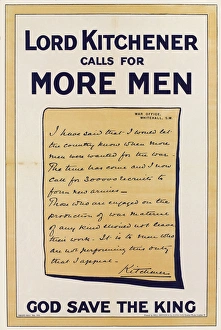 LORD KITCHENER
CALLS FOR
MORE MEN
WAR OFFICE,
WHITEHALL, S.W.
I have said that I would let
the country know when more
men were wanted for the war.
The time has come and I now
call for 300000 recruits to
form new armies—
Those who are engaged on the
production of war materiel
of any kind should not leave
their work. It is to men who
are not performing this duty
that I appeal.
Kitchener
GOD SAVE THE KING